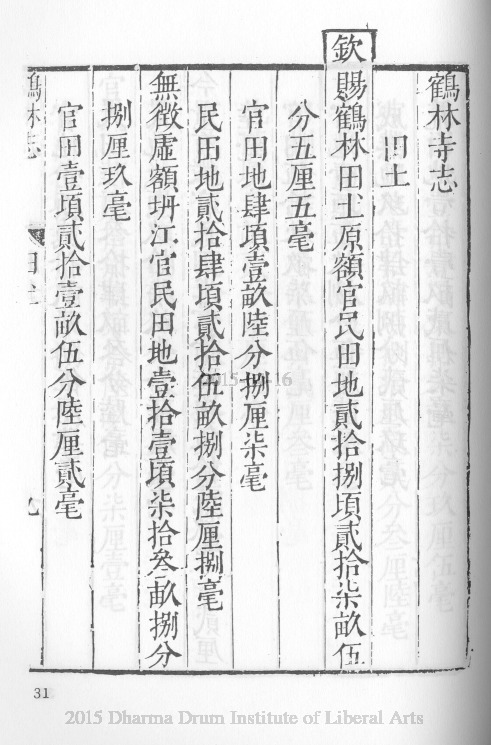 鶴林寺志
田土
欽賜鶴林田土原額官民田地貳拾捌頃貳拾柒畝伍
分五厘五毫
官田地肆頃壹畝陸分捌厘柒毫
民田地貳拾肆頃貳拾伍畝捌分陸厘捌毫
無徵虛額坍江官民田地壹拾壹頃柒拾叁畝捌分
捌厘玖毫
官田壹頃貳拾壹畝伍分陸厘貳毫
鶴林志 田土
31
2015 Dharma Drum Institute of Liberal Arts